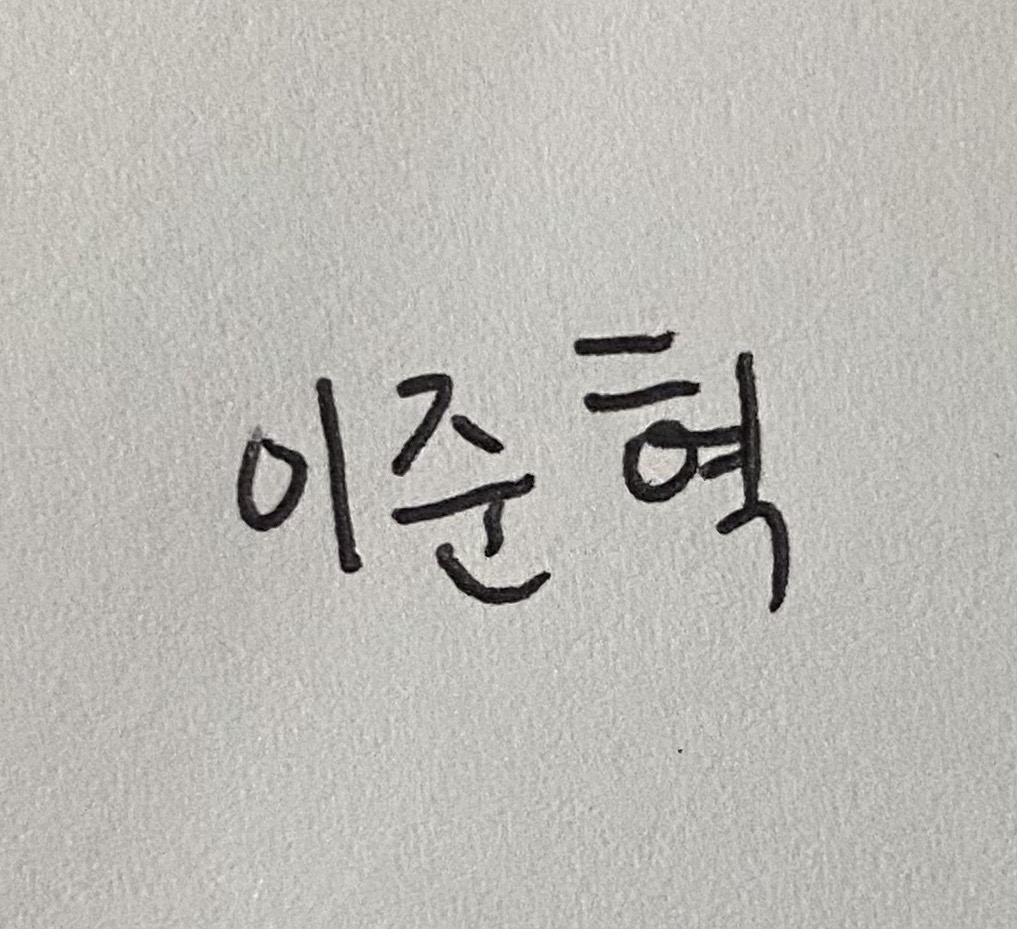 이준혁